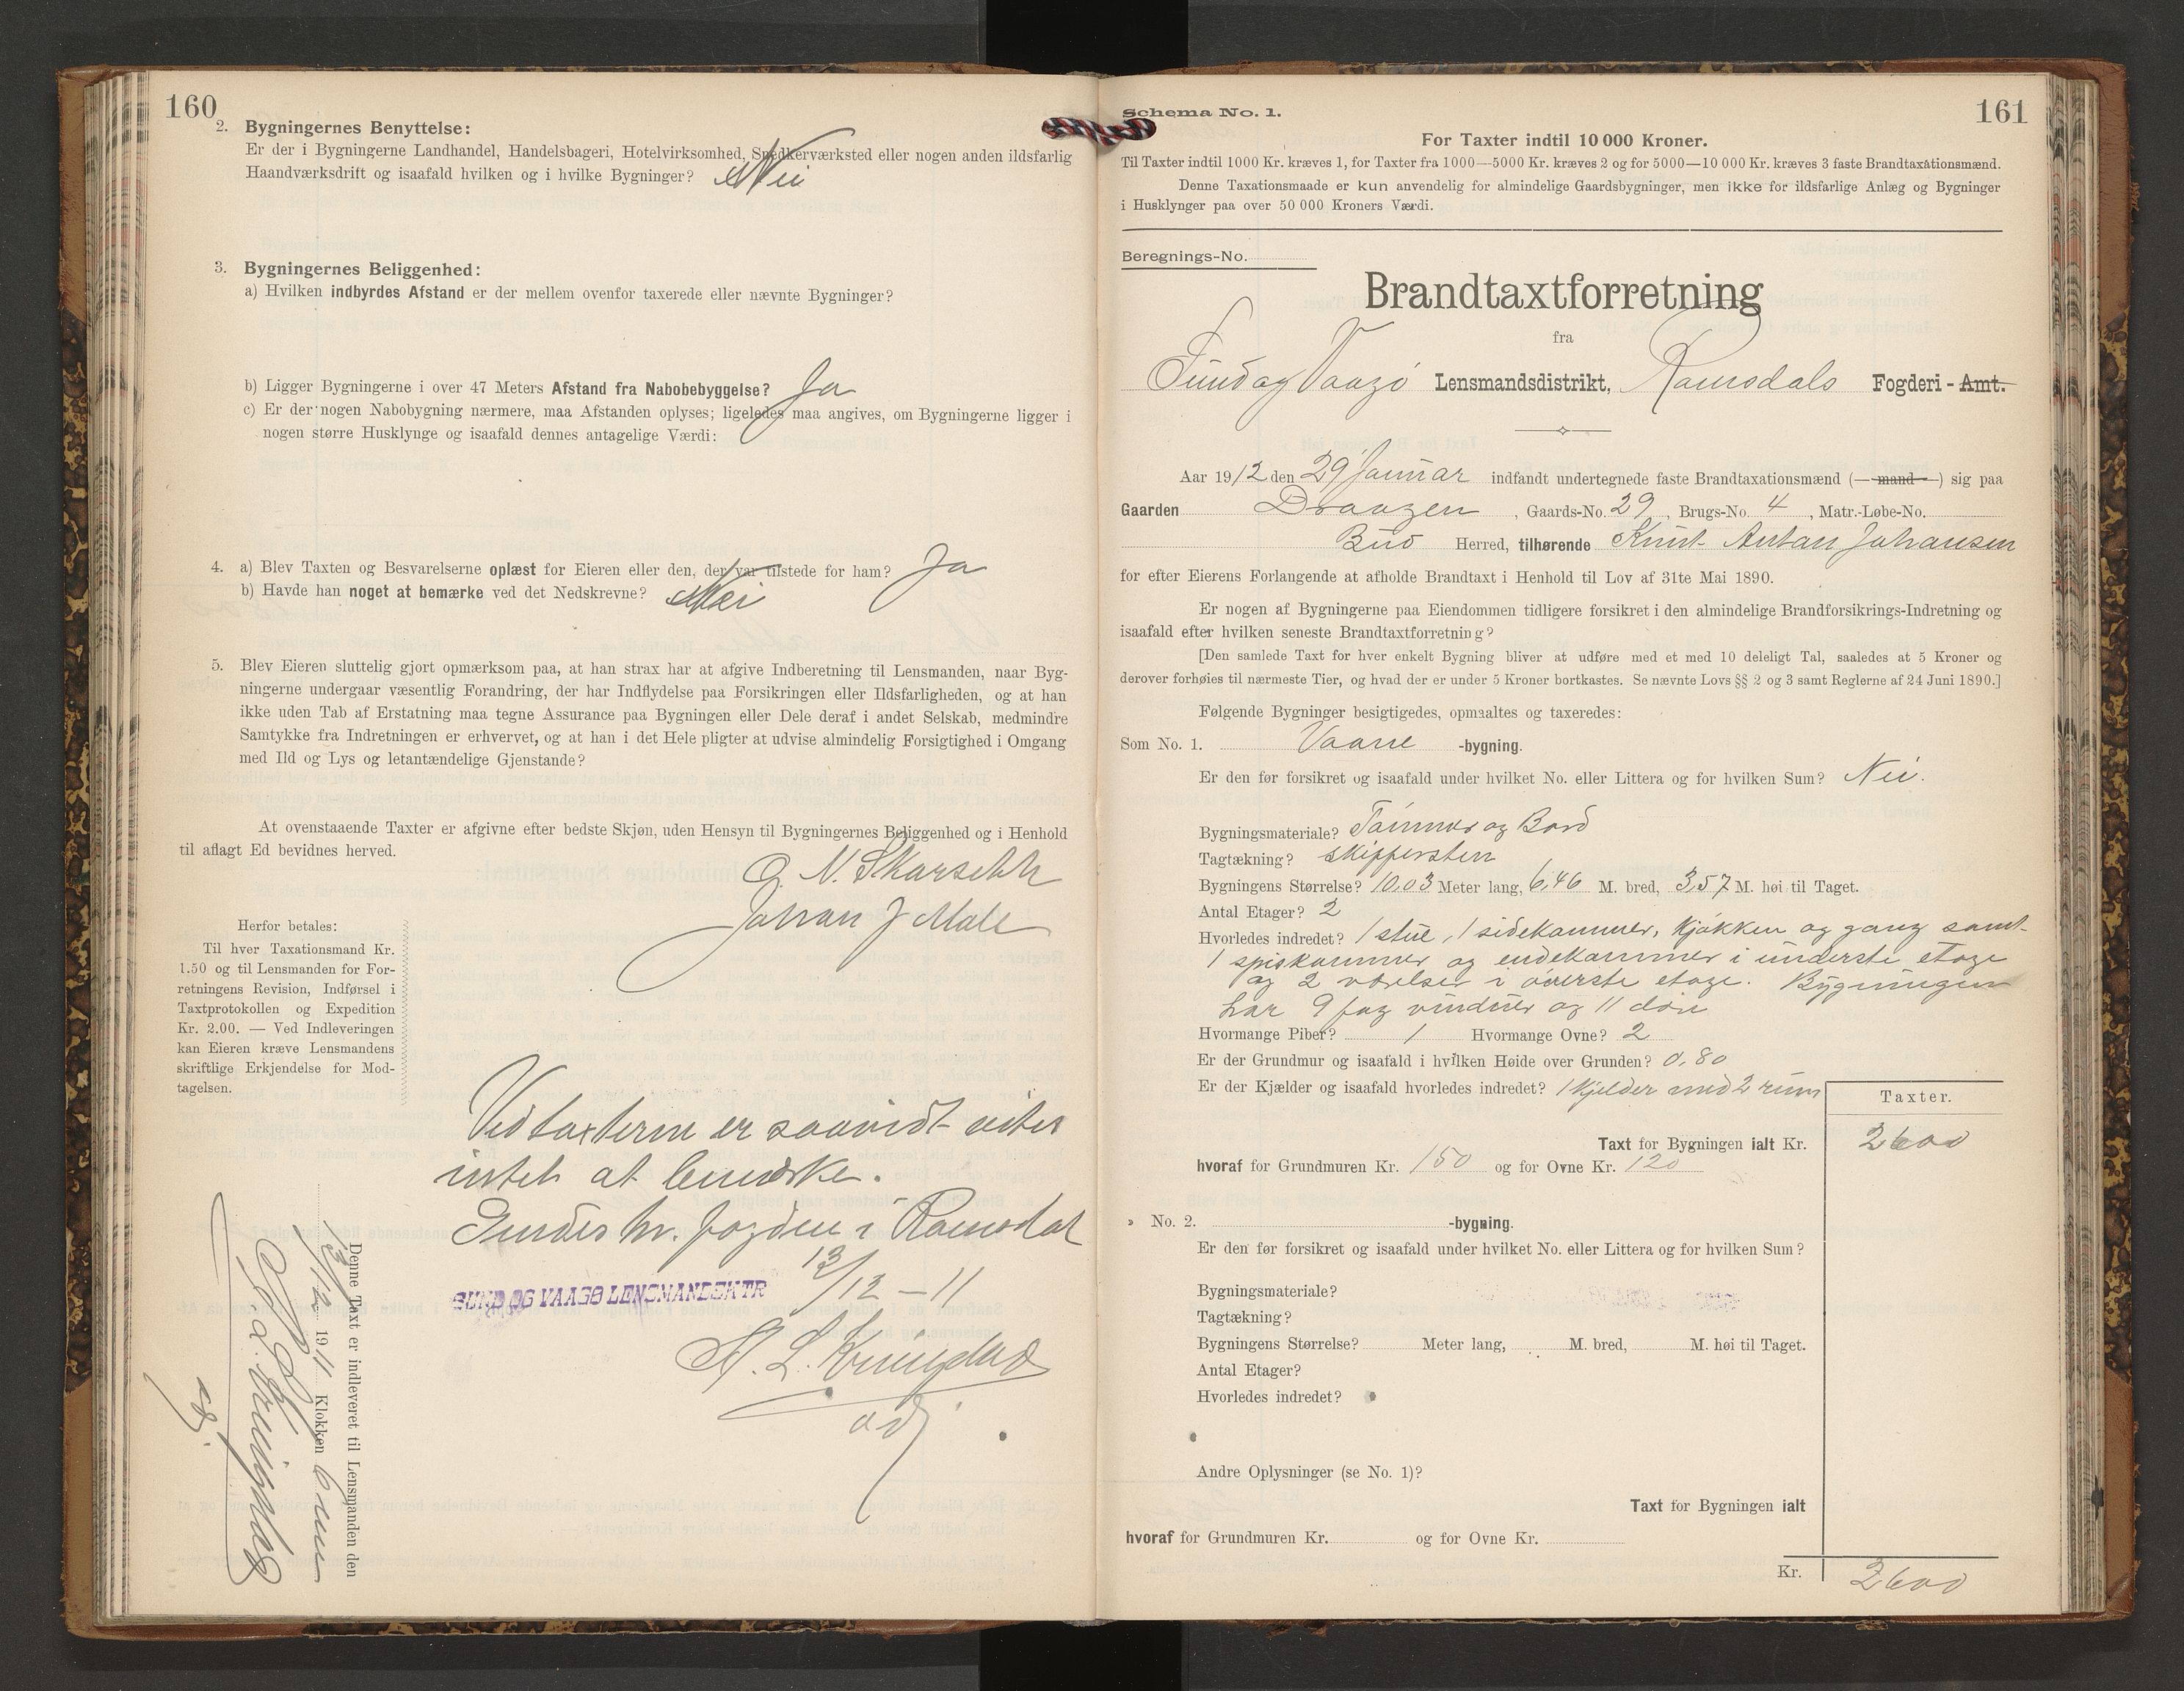 160
2. Bygningernes Benyttelse:
Er der i Bygningerne Landhandel, Handelsbageri, Hotelvirksomhed, Snedkerværksted eller nogen anden ildsfarlig
Haandværksdrift og isaafald hvilken og i hvilke Bygninger? Nei
3. Bygningernes Beliggenhed:
a) Hvilken indbyrdes Afstand er der mellem ovenfor taxerede eller nævnte Bygninger?
b) Ligger Bygningerne i over 47 Meters Afstand fra Nabobebyggelse? Ja
c) Er der nogen Nabobygning nærmere, maa Afstanden oplyses; ligeledes maa angives, om Bygningerne ligger i
nogen større Husklynge og isaafald dennes antagelige Værdi:
4. a) Blev Taxten og Besvarelserne oplæst for Eieren eller den, der var tilstede for ham? Ja
b) Havde han noget at bemærke ved det Nedskrevne? Nei
5. Blev Eieren sluttelig gjort opmærksom paa, at han strax har at afgive Indberetning til Lensmanden, naar Byg-
ningerne undergaar væsentlig Forandring, der har Indflydelse paa Forsikringen eller Ildsfarligheden, og at han
ikke uden Tab af Erstatning maa tegne Assurance paa Bygningen eller Dele deraf i andet Selskab, medmindre
Samtykke fra Indretningen er erhvervet, og at han i det Hele pligter at udvise almindelig Forsigtighed i Omgang
med Ild og Lys og letantændelige Gjenstande?
At ovenstaaende Taxter er afgivne efter bedste Skjøn, uden Hensyn til Bygningernes Beliggenhed og i Henhold
til aflagt Ed bevidnes herved.
O. N. Skarseth
Johan J Male
Herfor betales:
Til hver Taxationsmand Kr.
1.50 og til Lensmanden for For-
retningens Revision, Indførsel i
Taxtprotokollen og Expedition
Kr. 2.00. — Ved Indleveringen
kan Eieren kræve Lensmandens
skriftlige Erkjendelse for Mod-
tagelsen.
Ved taxterne er saavidt vites
intet at bemærke.
Sendes hr. fogden i Romsdal
SUND OG VAAGØ LENSMANDSKTR 13/12 – 11
A. L. Kringstad
adj
Denne Taxt er indleveret til Lensmanden den
13/12 1911 Klokken 6 em
A. L. Kringstad
adj.
Schema No. 1.
161
For Taxter indtil 10 000 Kroner.
Til Taxter indtil 1000 Kr. kræves 1, for Taxter fra 1000—5000 Kr. kræves 2 og for 5000—10 000 Kr. kræves 3 faste Brandtaxationsmænd.
Denne Taxationsmaade er kun anvendelig for almindelige Gaardsbygninger, men ikke for ildsfarlige Anlæg og Bygninger
i Husklynger paa over 50 000 Kroners Værdi.
Beregnings-No.
Brandtaxtforretning
fra
Sund og Vaagø Lensmandsdistrikt, Romsdals Fogderi - Amt.
Aar 1912 den 29 Januar indfandt undertegnede faste Brandtaxationsmænd (— mand —) sig paa
Gaarden Draagen, Gaards-No. 29, Brugs-No. 4, Matr.-Løbe-No.
Bud Herred, tilhørende Knut Antan Johansen
for efter Eierens Forlangende at afholde Brandtaxt i Henhold til Lov af 31te Mai 1890.
Er nogen af Bygningerne paa Eiendommen tidligere forsikret i den almindelige Brandforsikrings-Indretning og
isaafald efter hvilken seneste Brandtaxtforretning?
[Den samlede Taxt for hver enkelt Bygning bliver at udføre med et med 10 deleligt Tal, saaledes at 5 Kroner og
derover forhøies til nærmeste Tier, og hvad der er under 5 Kroner bortkastes. Se nævnte Lovs §§ 2 og 3 samt Reglerne af 24 Juni 1890.]
Følgende Bygninger besigtigedes, opmaaltes og taxeredes:
Som No. 1. Vaane -bygning.
Er den før forsikret og isaafald under hvilket No. eller Littera og for hvilken Sum? Nei.
Bygningsmateriale? Tømmer og Bord
Tagtækning? skiffersten
Bygningens Størrelse? 10,03 Meter lang, 6,46 M. bred, 3,57 M. høi til Taget.
Antal Etager? 2
Hvorledes indredet? 1 stue, 1 sidekammer, kjøkken og gang samt
1 spiskammer og endekammer i underste etage
og 2 værelser i øverste etage. Bygningen
har 9 fag vinduer og 11 døre
Hvormange Piber? 1 Hvormange Ovne? 2
Er der Grundmur og isaafald i hvilken Høide over Grunden? 0,80
Er der Kjælder og isaafald hvorledes indredet? 1 kjelder med 2 rum
Taxter.
Taxt for Bygningen ialt Kr. 2600
hvoraf for Grundmuren Kr. 150 og for Ovne Kr. 120
» No. 2. -bygning.
Er den før forsikret og isaafald under hvilket No. eller Littera og for hvilken Sum?
Bygningsmateriale?
Tagtækning?
Bygningens Størrelse? Meter lang, M. bred, M. høi til Taget.
Antal Etager?
Hvorledes indredet?
Andre Oplysninger (se No. 1)?
Taxt for Bygningen ialt
hvoraf for Grundmuren Kr. og for Ovne Kr.
Kr. 2600